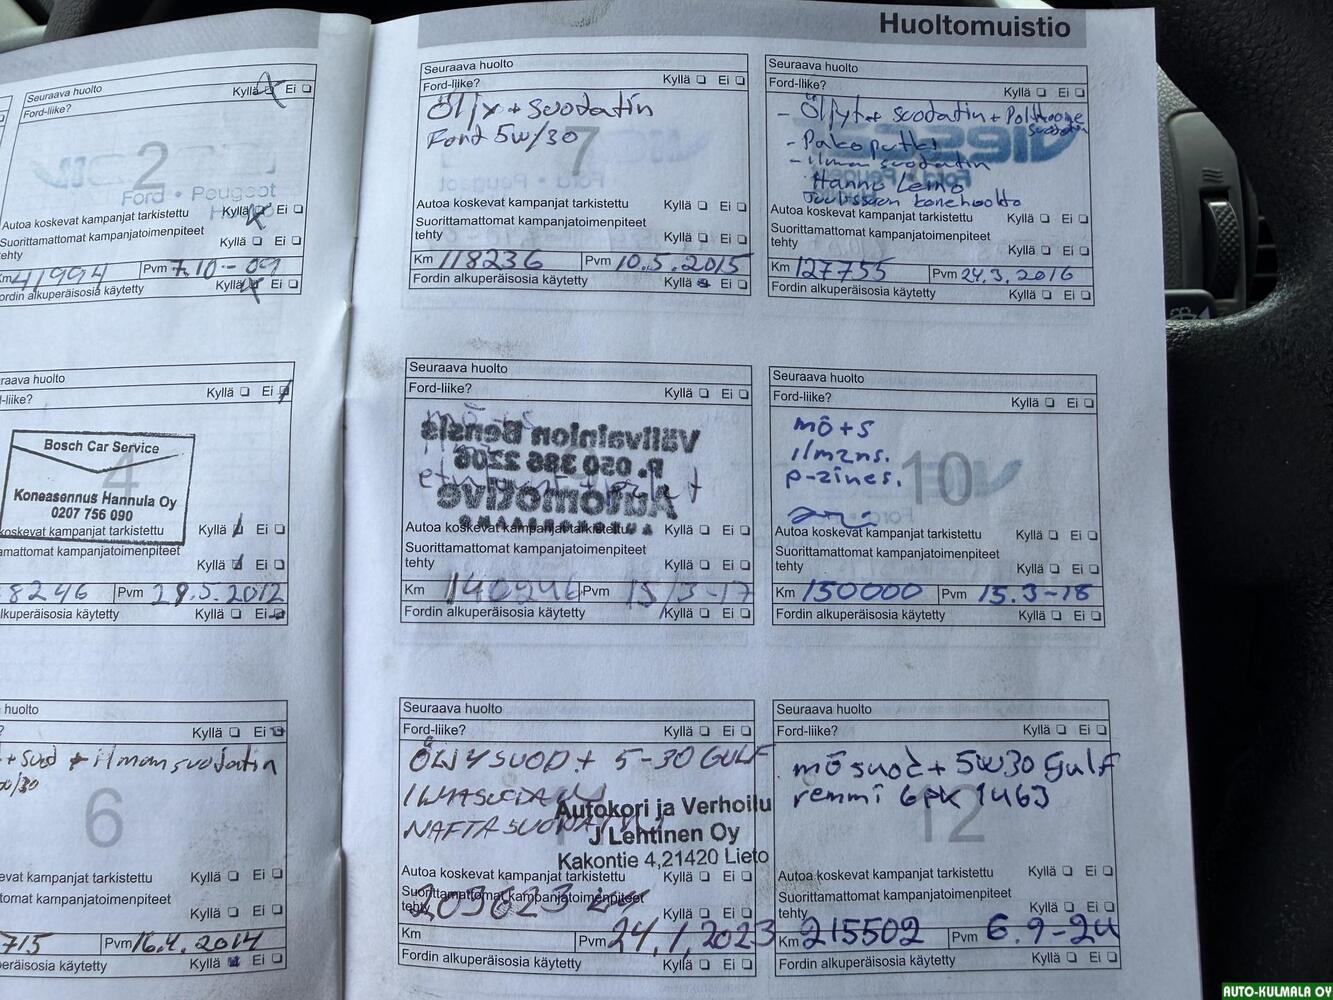 Huoltomuistio
Seuraava huolto
Ford-liike? Kyllä Ei
2
Ford • Peugeot
Autoa koskevat kampanjat tarkistettu Kyllä Ei
Suorittamattomat kampanjatoimenpiteet
tehty Kyllä Ei
Km 41994 Pvm 7.10-09
Fordin alkuperäisosia käytetty Kyllä Ei
raava huolto
-liike? Kyllä Ei
Bosch Car Service
Koneasennus Hannula Oy
0207 756 090
koskevat kampanjat tarkistettu Kyllä Ei
amattomat kampanjatoimenpiteet
Kyllä Ei
8246 Pvm 29.5.2012
lkuperäisosia käytetty Kyllä Ei
huolto
? Kyllä Ei
+ suod + ilman suodatin
/30
6
evat kampanjat tarkistettu Kyllä Ei
tomat kampanjatoimenpiteet
Kyllä Ei
715 Pvm 16.4.2014
eräisosia käytetty Kyllä Ei
Seuraava huolto
Ford-liike? Kyllä Ei
Öljy + suodatin
Ford 5w/30
7
Autoa koskevat kampanjat tarkistettu Kyllä Ei
Suorittamattomat kampanjatoimenpiteet
tehty Kyllä Ei
Km 118236 Pvm 10.5.2015
Fordin alkuperäisosia käytetty Kyllä Ei
Seuraava huolto
Ford-liike? Kyllä Ei
- Öljyt + suodatin + Polttoone
suodatin
- Pakoputki
- ilman suodatin
Hanno Leino
konehuolto
Autoa koskevat kampanjat tarkistettu Kyllä Ei
Suorittamattomat kampanjatoimenpiteet
tehty Kyllä Ei
Km 127755 Pvm 24.3.2016
Fordin alkuperäisosia käytetty Kyllä Ei
Seuraava huolto
Ford-liike? Kyllä Ei
Välivainion Bensis
P. 050 386 2206
Automotive
Autoa koskevat kampanjat tarkistettu Kyllä Ei
Suorittamattomat kampanjatoimenpiteet
tehty Kyllä Ei
Km 140246 Pvm 15/3-17
Fordin alkuperäisosia käytetty Kyllä Ei
Seuraava huolto
Ford-liike? Kyllä Ei
mö+s
ilmzns.
p-zines.
10
Autoa koskevat kampanjat tarkistettu Kyllä Ei
Suorittamattomat kampanjatoimenpiteet
tehty Kyllä Ei
Km 150000 Pvm 15.3-18
Fordin alkuperäisosia käytetty Kyllä Ei
Seuraava huolto
Ford-liike? Kyllä Ei
ÖLJYSUOD + 5-30 GULF
NAFTASUODA
Autokori ja Verhoilu
J Lehtinen Oy
Kakontie 4,21420 Lieto
Autoa koskevat kampanjat tarkistettu Kyllä Ei
Suorittamattomat kampanjatoimenpiteet
tehty 203623 Kyllä Ei
Km Pvm 24.1.2023
Fordin alkuperäisosia käytetty Kyllä Ei
Seuraava huolto
Ford-liike? Kyllä Ei
mö suod + 5w30 Gulf
remmi 6pk 1463
12
Autoa koskevat kampanjat tarkistettu Kyllä Ei
Suorittamattomat kampanjatoimenpiteet
tehty Kyllä Ei
Km 215502 Pvm 6.9-24
Fordin alkuperäisosia käytetty Kyllä Ei
AUTO-KULMALA OY